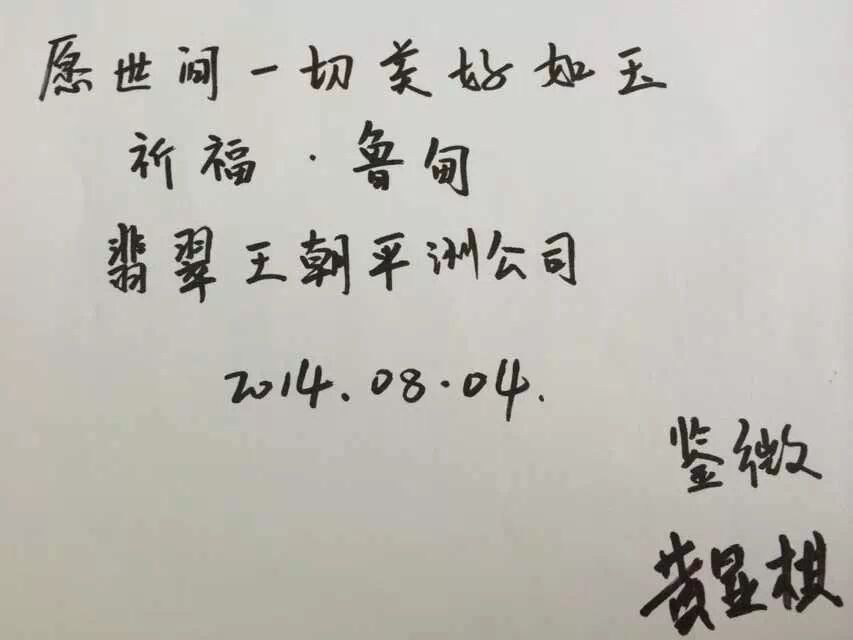 愿世间一切美好如玉
祈福·鲁甸
翡翠王朝平洲公司
2014.08.04.
鉴微
黄显棋